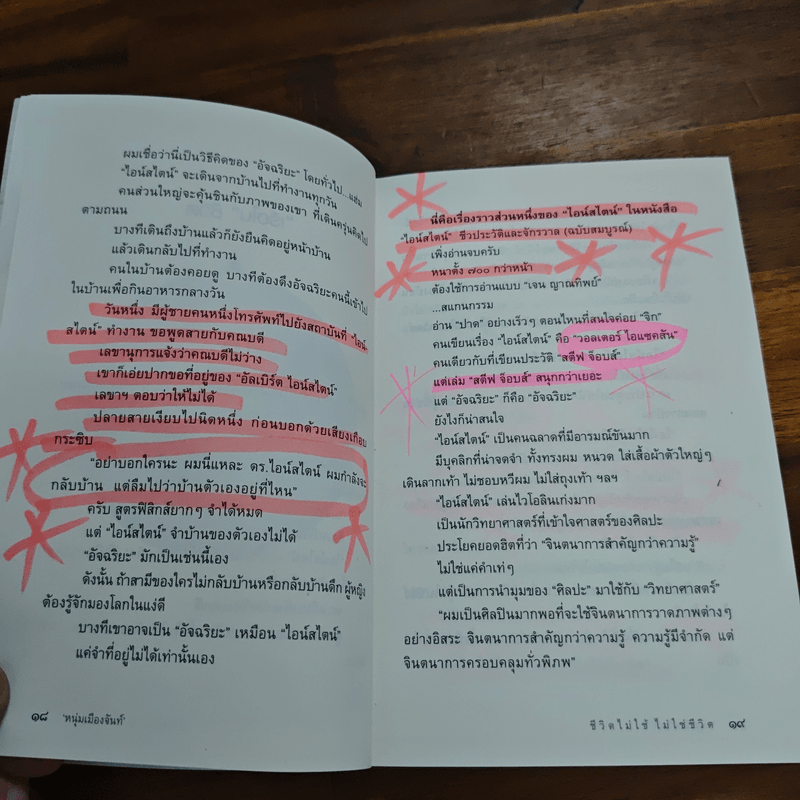 ผมเชื่อว่านี่เป็นวิธีคิดของ "อัจฉริยะ" โดยทั่วไป...แฮ่ม
"ไอน์สไตน์" จะเดินจากบ้านไปที่ทำงานทุกวัน
คนส่วนใหญ่จะคุ้นชินกับภาพของเขา ที่เดินครุ่นคิดไป
ตามถนน
บางทีเดินถึงบ้านแล้วก็ยังยืนคิดอยู่หน้าบ้าน
แล้วเดินกลับไปที่ทำงาน
คนในบ้านต้องคอยดู บางทีต้องดึงอัจฉริยะคนนี้เข้าไป
ในบ้านเพื่อกินอาหารกลางวัน
วันหนึ่ง มีผู้ชายคนหนึ่งโทรศัพท์ไปยังสถาบันที่ "ไอน์-
สไตน์" ทำงาน ขอพูดสายกับคณบดี
เลขานุการแจ้งว่าคณบดีไม่ว่าง
เขาก็เอ่ยปากขอที่อยู่ของ "อัลเบิร์ต ไอน์สไตน์"
เลขาฯ ตอบว่าให้ไม่ได้
ปลายสายเงียบไปนิดหนึ่ง ก่อนบอกด้วยเสียงเกือบ
กระซิบ
"อย่าบอกใครนะ ผมนี่แหละ ดร.ไอน์สไตน์ ผมกำลังจะ
กลับบ้าน แต่ลืมไปว่าบ้านตัวเองอยู่ที่ไหน"
ครับ สูตรฟิสิกส์ยากๆ จำได้หมด
แต่ "ไอน์สไตน์" จำบ้านของตัวเองไม่ได้
"อัจฉริยะ" มักเป็นเช่นนี้เอง
ดังนั้น ถ้าสามีของใครไม่กลับบ้านหรือกลับบ้านดึก ผู้หญิง
ต้องรู้จักมองโลกในแง่ดี
บางทีเขาอาจเป็น "อัจฉริยะ" เหมือน "ไอน์สไตน์"
แค่จำที่อยู่ไม่ได้เท่านั้นเอง
๑๘ 'หนุ่มเมืองจันท์'
นี่คือเรื่องราวส่วนหนึ่งของ "ไอน์สไตน์" ในหนังสือ
"ไอน์สไตน์" ชีวประวัติและจักรวาล (ฉบับสมบูรณ์)
เพิ่งอ่านจบครับ
หนาตั้ง ๗๐๐ กว่าหน้า
ต้องใช้การอ่านแบบ "เจน ญาณทิพย์"
...สแกนกรรม
อ่าน "ปาด" อย่างเร็วๆ ตอนไหนที่สนใจค่อย "จิก"
คนเขียนเรื่อง "ไอน์สไตน์" คือ "วอลเตอร์ ไอแซคสัน"
คนเดียวกับที่เขียนประวัติ "สตีฟ จ็อบส์"
แต่เล่ม "สตีฟ จ็อบส์" สนุกกว่าเยอะ
แต่ "อัจฉริยะ" ก็คือ "อัจฉริยะ"
ยังไงก็น่าสนใจ
"ไอน์สไตน์" เป็นคนฉลาดที่มีอารมณ์ขันมาก
มีบุคลิกที่น่าจดจำ ทั้งทรงผม หนวด ใส่เสื้อผ้าตัวใหญ่ๆ
เดินลากเท้า ไม่ชอบหวีผม ไม่ใส่ถุงเท้า ฯลฯ
"ไอน์สไตน์" เล่นไวโอลินเก่งมาก
เป็นนักวิทยาศาสตร์ที่เข้าใจศาสตร์ของศิลปะ
ประโยคยอดฮิตที่ว่า "จินตนาการสำคัญกว่าความรู้"
ไม่ใช่แค่คำเท่ๆ
แต่เป็นการนำมุมของ "ศิลปะ" มาใช้กับ "วิทยาศาสตร์"
"ผมเป็นศิลปินมากพอที่จะใช้จินตนาการวาดภาพต่างๆ
อย่างอิสระ จินตนาการสำคัญกว่าความรู้ ความรู้มีจำกัด แต่
จินตนาการครอบคลุมทั่วพิภพ"
ชีวิตไม่ใช้ ไม่ใช่ชีวิต ๑๙